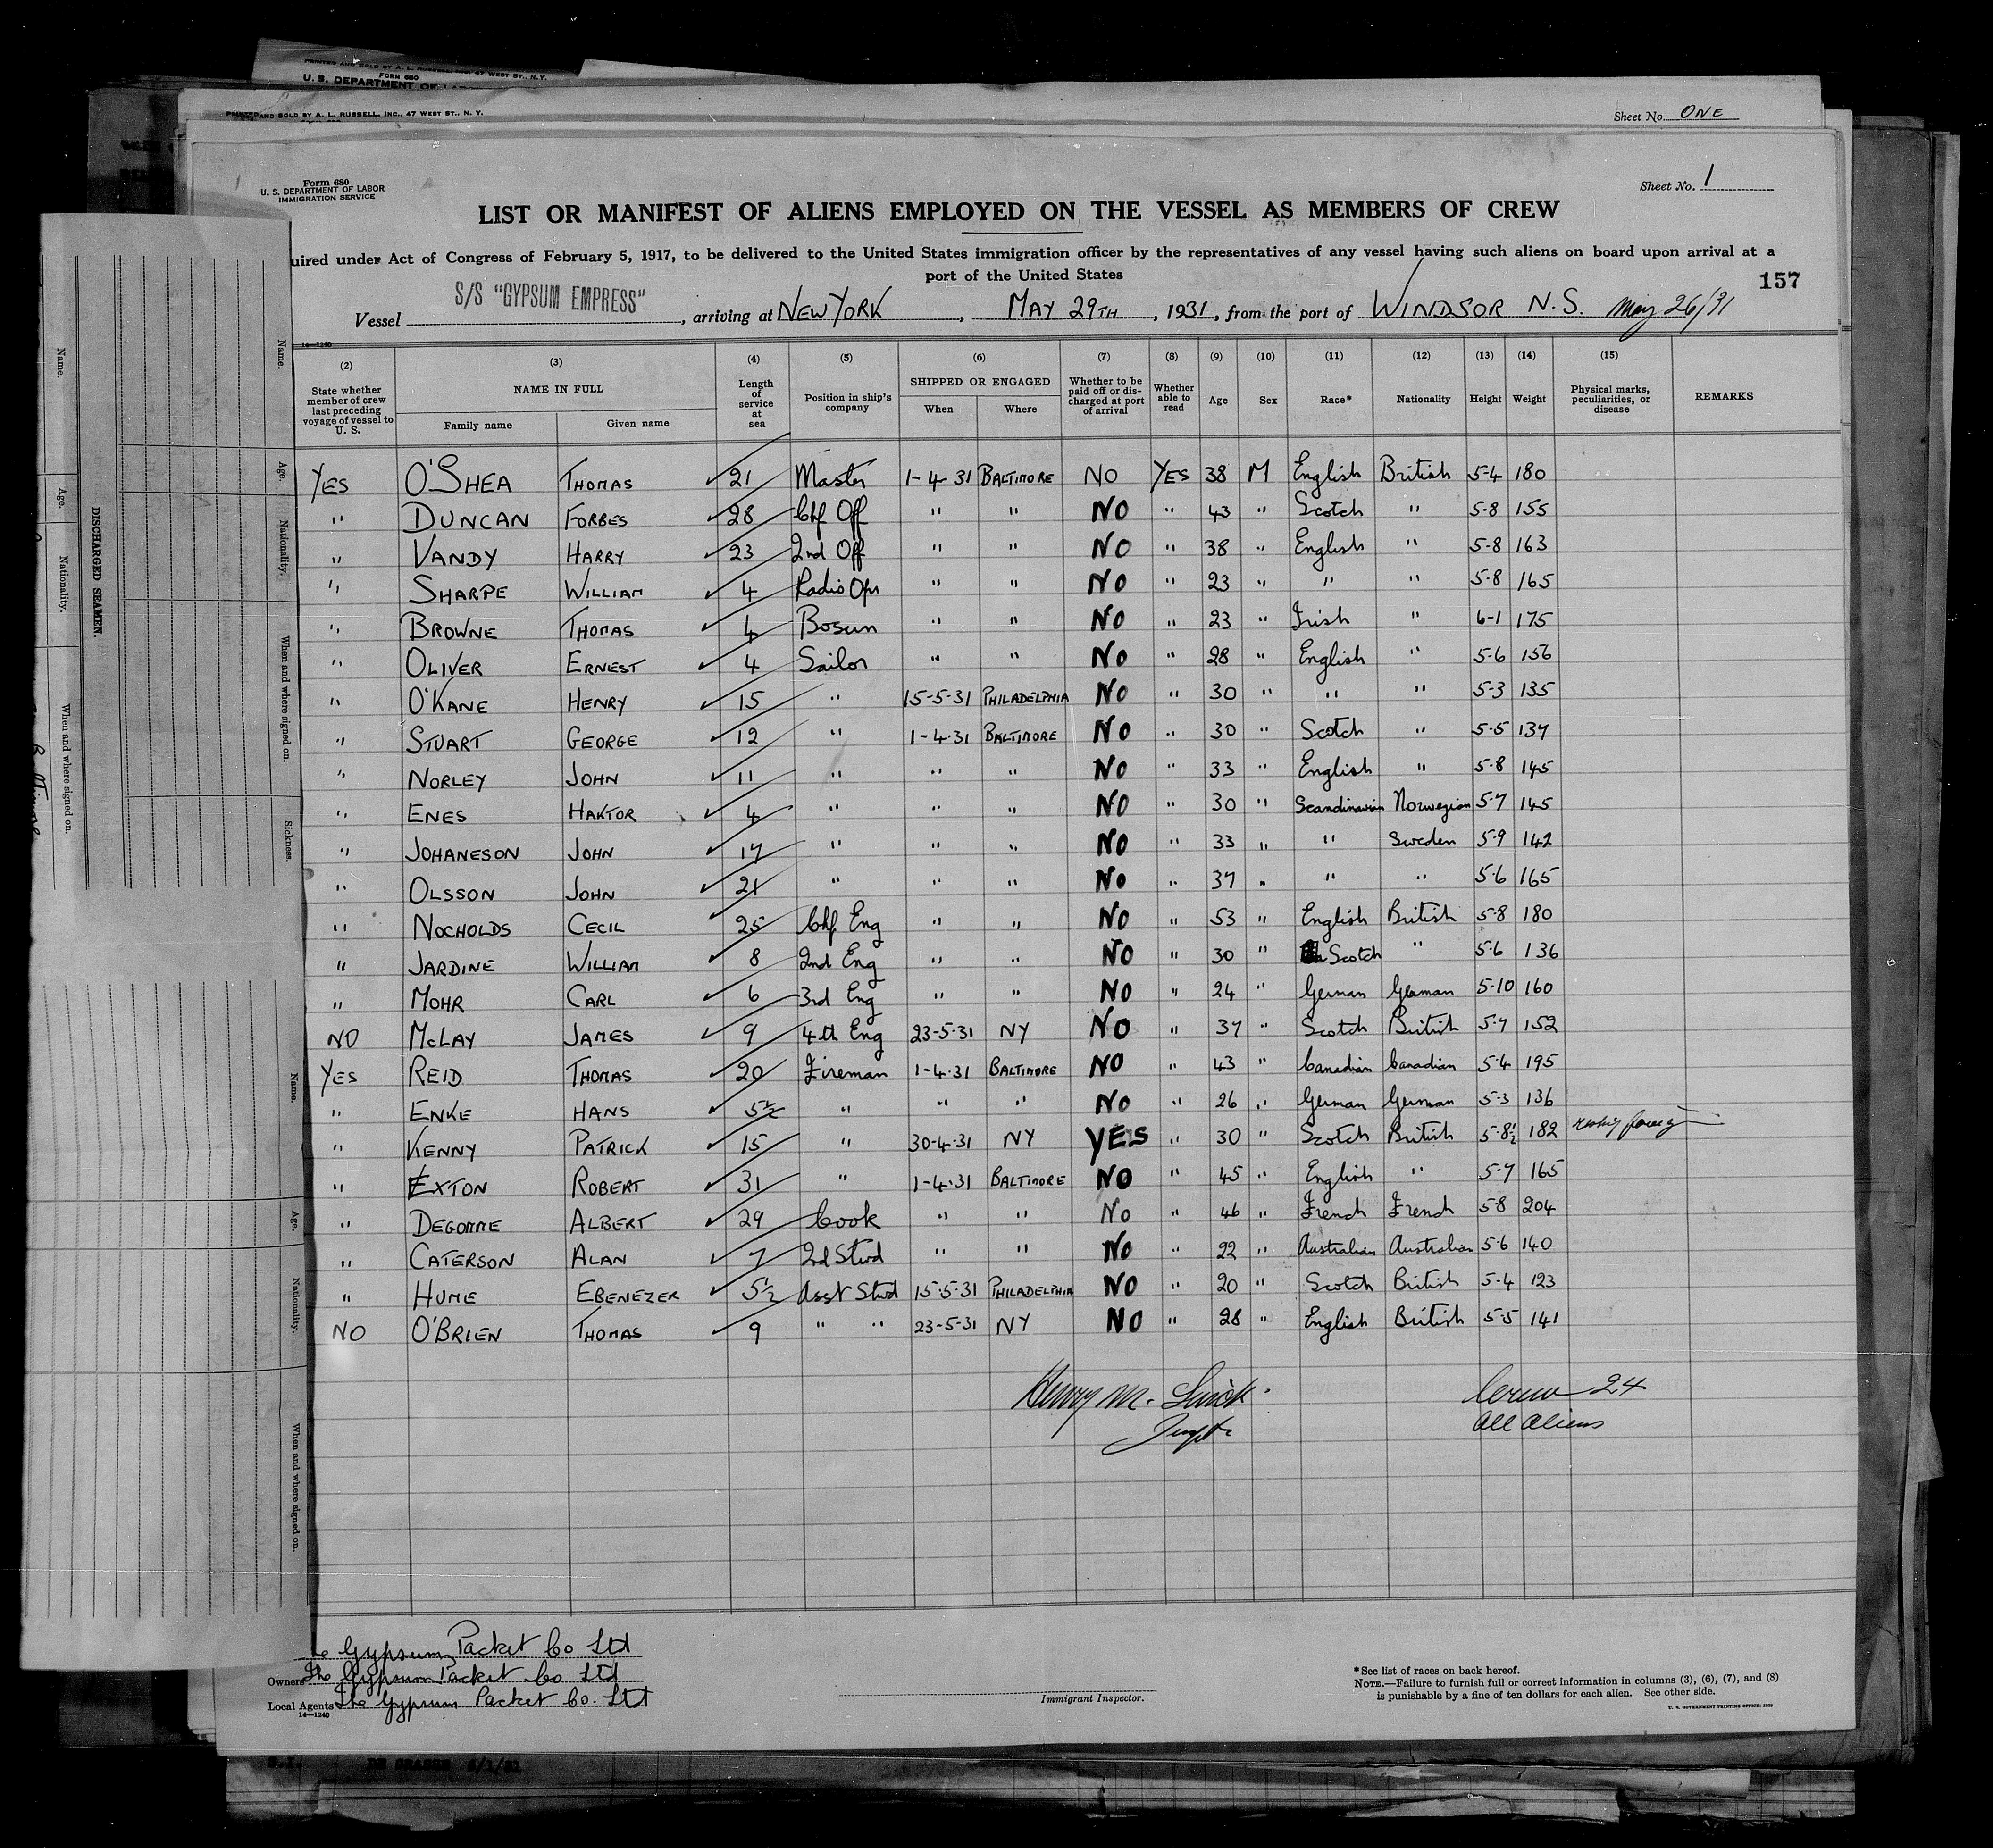 PRINTED AND SOLD BY A. L. RUSSELL, INC. 47 WEST ST., N. Y.
FORM 680
U. S. DEPARTMENT OF LABOR
PRINTED AND SOLD BY A. L. RUSSELL, INC., 47 WEST ST., N. Y.
Sheet No. ONE
Form 680
U. S. DEPARTMENT OF LABOR
IMMIGRATION SERVICE
Sheet No. 1
LIST OR MANIFEST OF ALIENS EMPLOYED ON THE VESSEL AS MEMBERS OF CREW
uired under Act of Congress of February 5, 1917, to be delivered to the United States immigration officer by the representatives of any vessel having such aliens on board upon arrival at a
port of the United States
157
Vessel S/S "GYPSUM EMPRESS", arriving at NEW YORK, MAY 29TH, 1931, from the port of WINDSOR N.S. May 26/31
14—1240
(2) (3) (4) (5) (6) (7) (8) (9) (10) (11) (12) (13) (14) (15)
State whether member of crew last preceding voyage of vessel to U. S. NAME IN FULL Family name Given name Length of service at sea Position in ship's company SHIPPED OR ENGAGED When Where Whether to be paid off or discharged at port of arrival Whether able to read Age Sex Race* Nationality Height Weight Physical marks, peculiarities, or disease REMARKS
YES O'SHEA THOMAS ✓ 21 Master 1-4-31 BALTIMORE NO YES 38 M English British 5-4 180
" DUNCAN FORBES ✓ 28 Chf Off " " NO " 43 " Scotch " 5-8 155
" VANDY HARRY ✓ 23 2nd Off " " NO " 38 " English " 5-8 163
" SHARPE WILLIAM ✓ 4 Radio Opr " " NO " 23 " " " 5-8 165
" BROWNE THOMAS ✓ 4 Bosun " " NO " 23 " Irish " 6-1 175
" OLIVER ERNEST ✓ 4 Sailor " " NO " 28 " English " 5-6 156
" O'KANE HENRY ✓ 15 " 15-5-31 PHILADELPHIA NO " 30 " " " 5-3 135
" STUART GEORGE ✓ 12 " 1-4-31 BALTIMORE NO " 30 " Scotch " 5-5 137
" NORLEY JOHN ✓ 11 " " " NO " 33 " English " 5-8 145
" ENES HAKTOR ✓ 4 " " " NO " 30 " Scandinavian Norwegian 5-7 145
" JOHANESON JOHN ✓ 17 " " " NO " 33 " " Sweden 5-9 142
" OLSSON JOHN ✓ 21 " " " NO " 37 " " " 5-6 165
" NOCHOLDS CECIL ✓ 25 Chf Eng " " NO " 53 " English British 5-8 180
" JARDINE WILLIAM ✓ 8 2nd Eng " " NO " 30 " Scotch " 5-6 136
" MOHR CARL ✓ 6 3rd Eng " " NO " 24 " German German 5-10 160
NO MCLAY JAMES ✓ 9 4th Eng 23-5-31 NY NO " 37 " Scotch British 5-7 152
YES REID THOMAS ✓ 20 Fireman 1-4-31 BALTIMORE NO " 43 " Canadian Canadian 5-4 195
" ENKE HANS ✓ 5½ " " " NO " 26 " German German 5-3 136
" KENNY PATRICK ✓ 15 " 30-4-31 NY YES " 30 " Scotch British 5-8½ 182
" EXTON ROBERT ✓ 31 " 1-4-31 BALTIMORE NO " 45 " English " 5-7 165
" DEGOMME ALBERT ✓ 29 Cook " " NO " 46 " French French 5-8 204
" CATERSON ALAN ✓ 7 2d Stwd " " NO " 22 " Australian Australian 5-6 140
" HUME EBENEZER ✓ 5½ Asst Stwd 15-5-31 PHILADELPHIA NO " 20 " Scotch British 5-4 123
NO O'BRIEN THOMAS ✓ 9 " " 23-5-31 NY NO " 28 " English British 5-5 141
Henry M.
Crew 24
All Aliens
Gypsum Packet Co Ltd
Owners The Gypsum Packet Co Ltd
Local Agents The Gypsum Packet Co. Ltd
14—1240
Immigrant Inspector.
*See list of races on back hereof.
NOTE.—Failure to furnish full or correct information in columns (3), (6), (7), and (8)
is punishable by a fine of ten dollars for each alien. See other side.
U. S. GOVERNMENT PRINTING OFFICE: 1929
DISCHARGED SEAMEN.
Name.
Age.
Nationality.
When and where signed on.
Name.
Age.
Nationality.
When and where signed on.
Sickness.
Name.
Age.
Nationality.
When and where signed on.